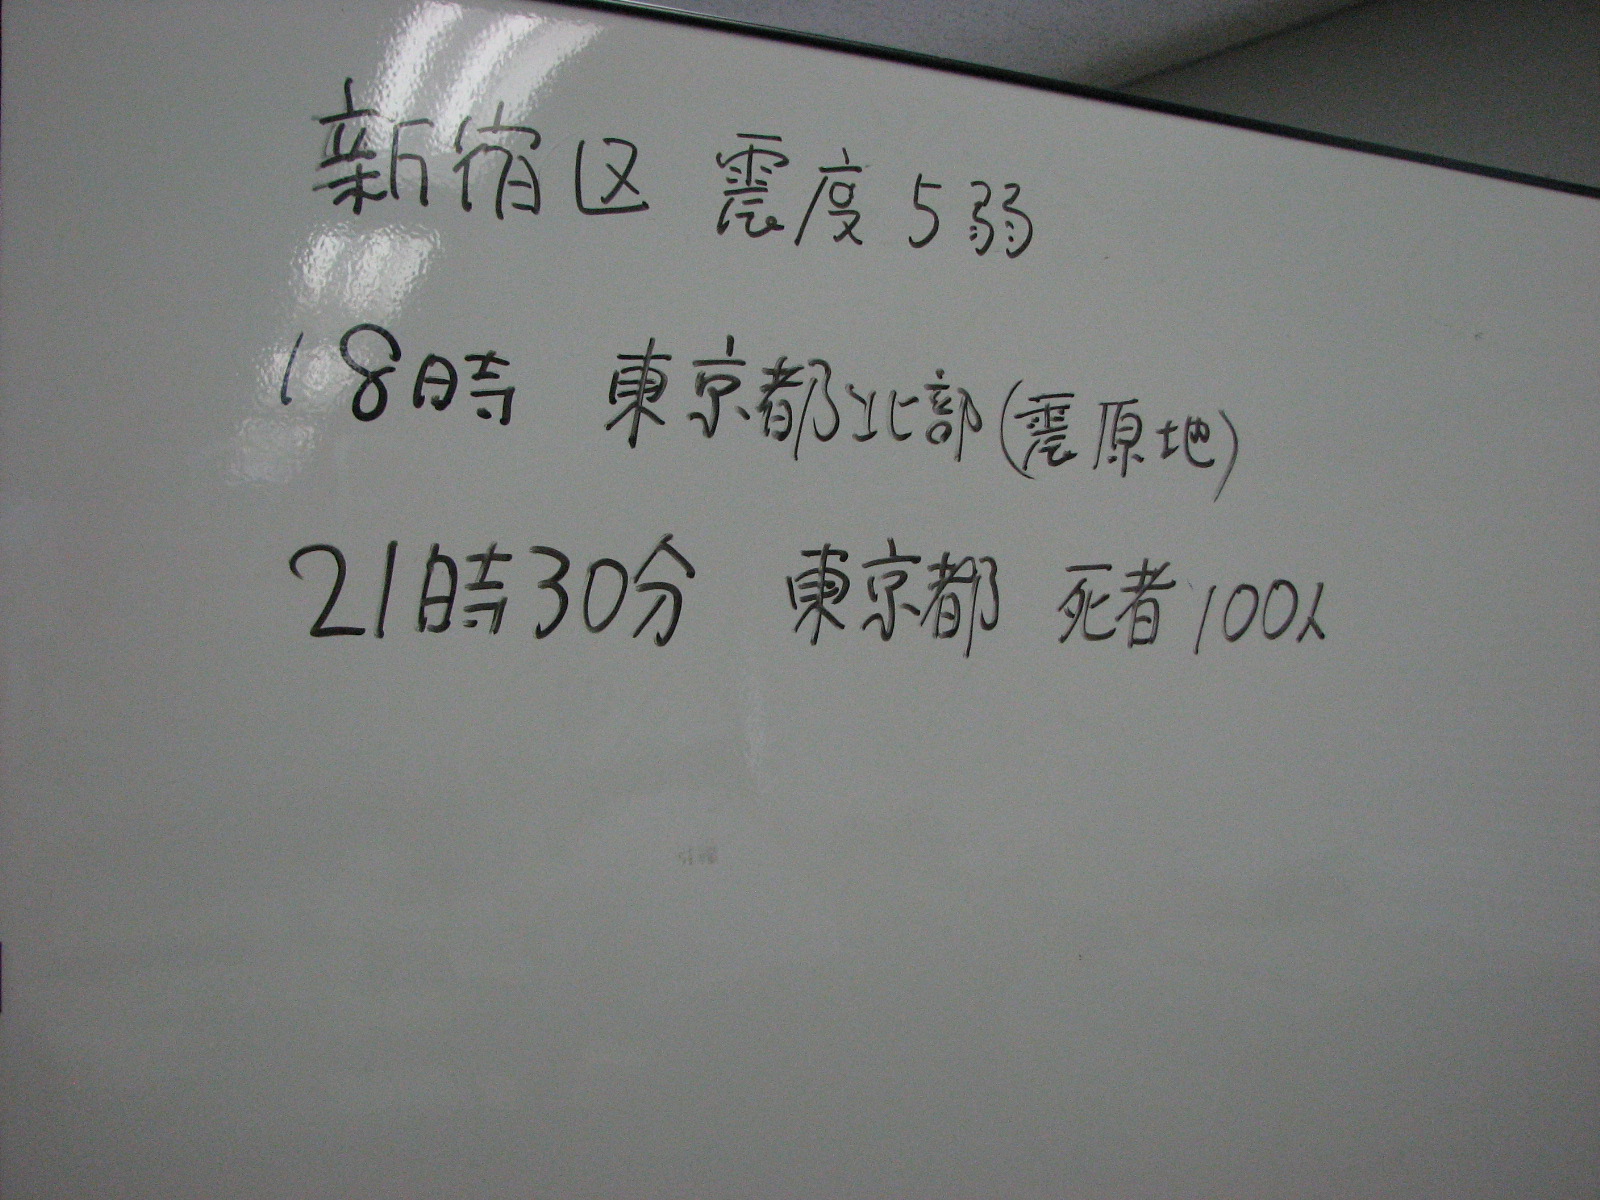 新宿区 震度5弱
18時 東京都北部(震原地)
21時30分 東京都 死者100人